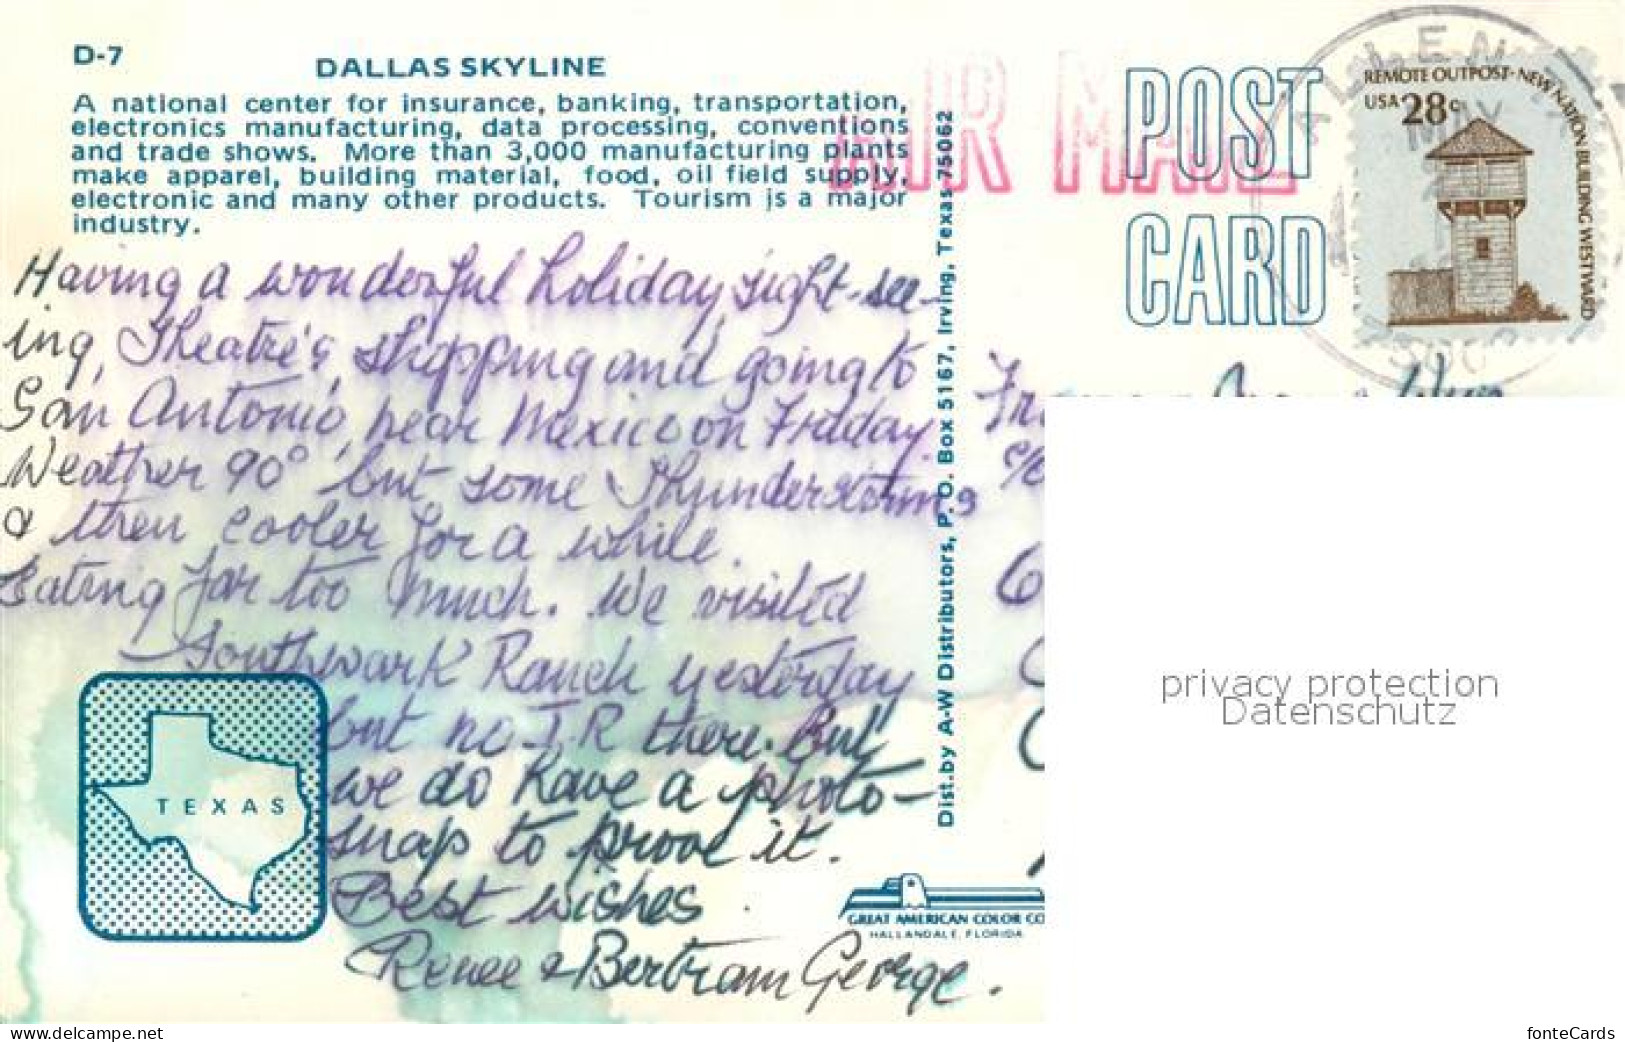 D-7
DALLAS SKYLINE
A national center for insurance, banking, transportation,
electronics manufacturing, data processing, conventions
and trade shows. More than 3,000 manufacturing plants
make apparel, building material, food, oil field supply,
electronic and many other products. Tourism is a major
industry.
Having a wonderful holiday, sight-see-
ing, Theatre's, shopping and going to
San Antonio, near Mexico on Friday.
Weather 90° but some Thunderstorms
& then cooler for a while.
Eating far too much. We visited
Southwark Ranch yesterday
but no J.R there. But
we do have a photo-
snap to prove it.
Best wishes
Renee & Bertram George.
TEXAS
Dist.by A-W Distributors, P. O. Box 5167, Irving, Texas 75062
GREAT AMERICAN COLOR CO
HALLANDALE, FLORIDA
AIR MAIL
POST
CARD
ALLEN
REMOTE OUTPOST·NEW NATION BUILDING WESTWARD
USA 28c
c/o
privacy protection
Datenschutz
www.delcampe.net
fonteCards